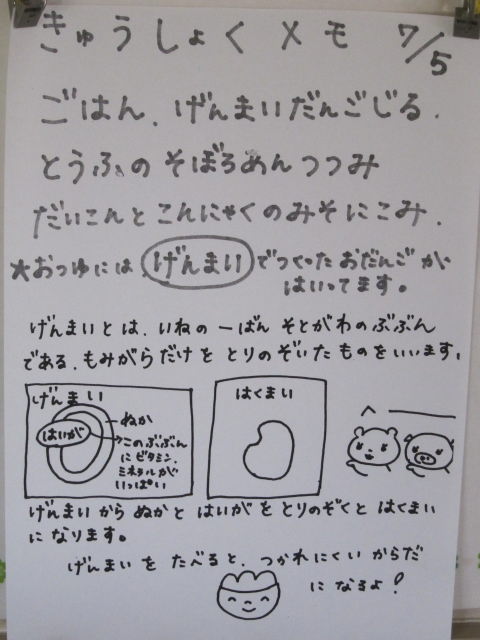 きゅうしょくメモ 7/5
ごはん、げんまいだんごじる、
とうふのそぼろめんつつみ
だいこんとこんにゃくのみそにこみ、
★おつゆには げんまい でつくったおだんごが
はいってます。
げんまいとは、いねの一ばんそとがわのぶぶん
である、もみがらだけをとりのぞいたものをいいます。
げんまい
ぬか
はいが
このぶぶん
にビタミン、
ミネラルが
いっぱい
はくまい
へー
げんまいからぬかとはいがをとりのぞくとはくまい
になります。
げんまいをたべると、つかれにくいからだ
になるよ!